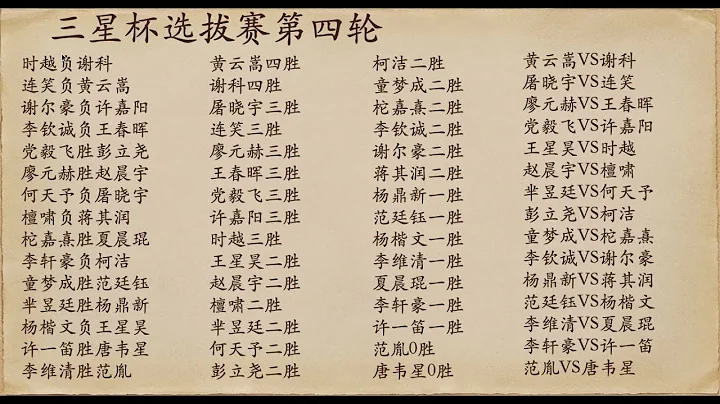 三星杯选拔赛第四轮
时越负谢科
连笑负黄云嵩
谢尔豪负许嘉阳
李钦诚负王春晖
党毅飞胜彭立尧
廖元赫胜赵晨宇
何天予负屠晓宇
檀啸负蒋其润
柁嘉熹胜夏晨琨
李轩豪负柯洁
童梦成胜范廷钰
芈昱廷胜杨鼎新
杨楷文负王星昊
许一笛胜唐韦星
李维清胜范胤
黄云嵩四胜
谢科四胜
屠晓宇三胜
连笑三胜
廖元赫三胜
王春晖三胜
党毅飞三胜
许嘉阳三胜
时越三胜
王星昊二胜
赵晨宇二胜
檀啸二胜
芈昱廷二胜
何天予二胜
彭立尧二胜
柯洁二胜
童梦成二胜
柁嘉熹二胜
李钦诚二胜
谢尔豪二胜
蒋其润二胜
杨鼎新一胜
范廷钰一胜
杨楷文一胜
李维清一胜
夏晨琨一胜
李轩豪一胜
许一笛一胜
范胤0胜
唐韦星0胜
黄云嵩VS谢科
屠晓宇VS连笑
廖元赫VS王春晖
党毅飞VS许嘉阳
王星昊VS时越
赵晨宇VS檀啸
芈昱廷VS何天予
彭立尧VS柯洁
童梦成VS柁嘉熹
李钦诚VS谢尔豪
杨鼎新VS蒋其润
范廷钰VS杨楷文
李维清VS夏晨琨
李轩豪VS许一笛
范胤VS唐韦星